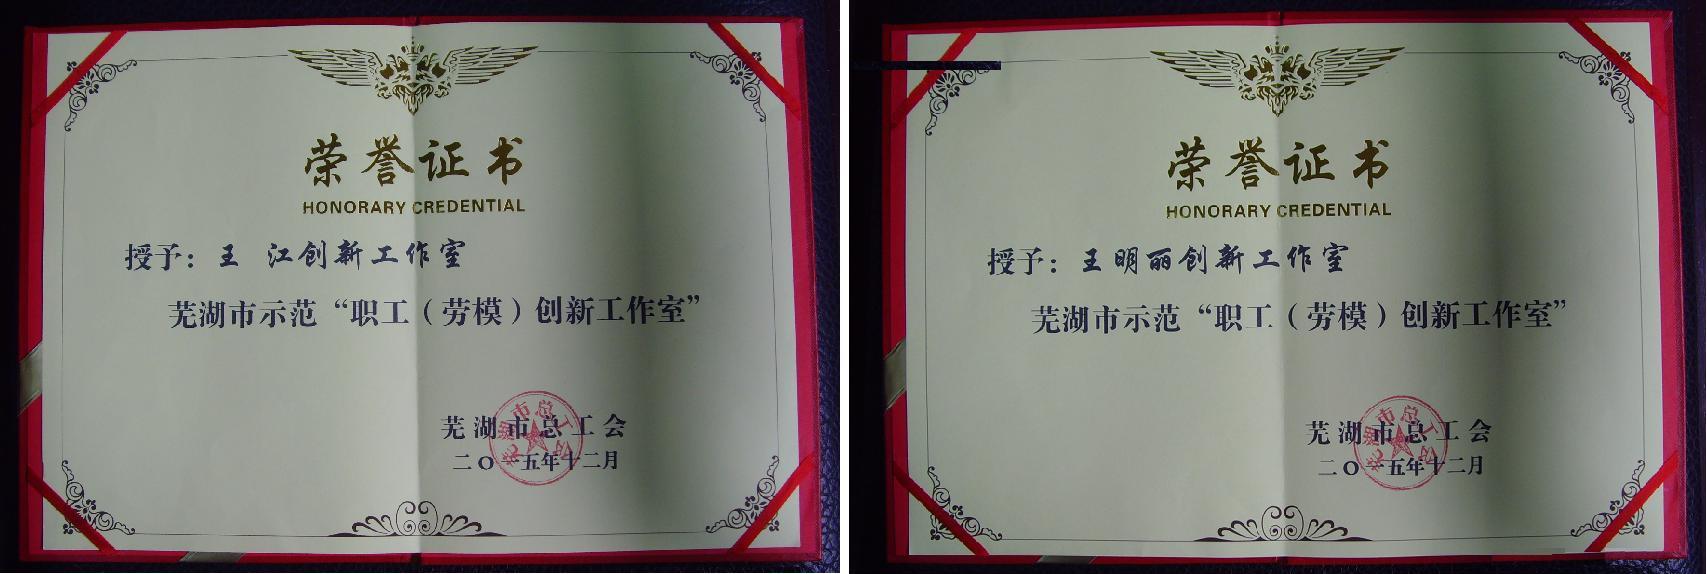 荣誉证书
HONORARY CREDENTIAL
授予：王 江创新工作室
芜湖市示范“职工（劳模）创新工作室”
芜湖市总工会
二〇一五年十二月
芜湖市总工会
荣誉证书
HONORARY CREDENTIAL
授予：王明丽创新工作室
芜湖市示范“职工（劳模）创新工作室”
芜湖市总工会
二〇一五年十二月
芜湖市总工会